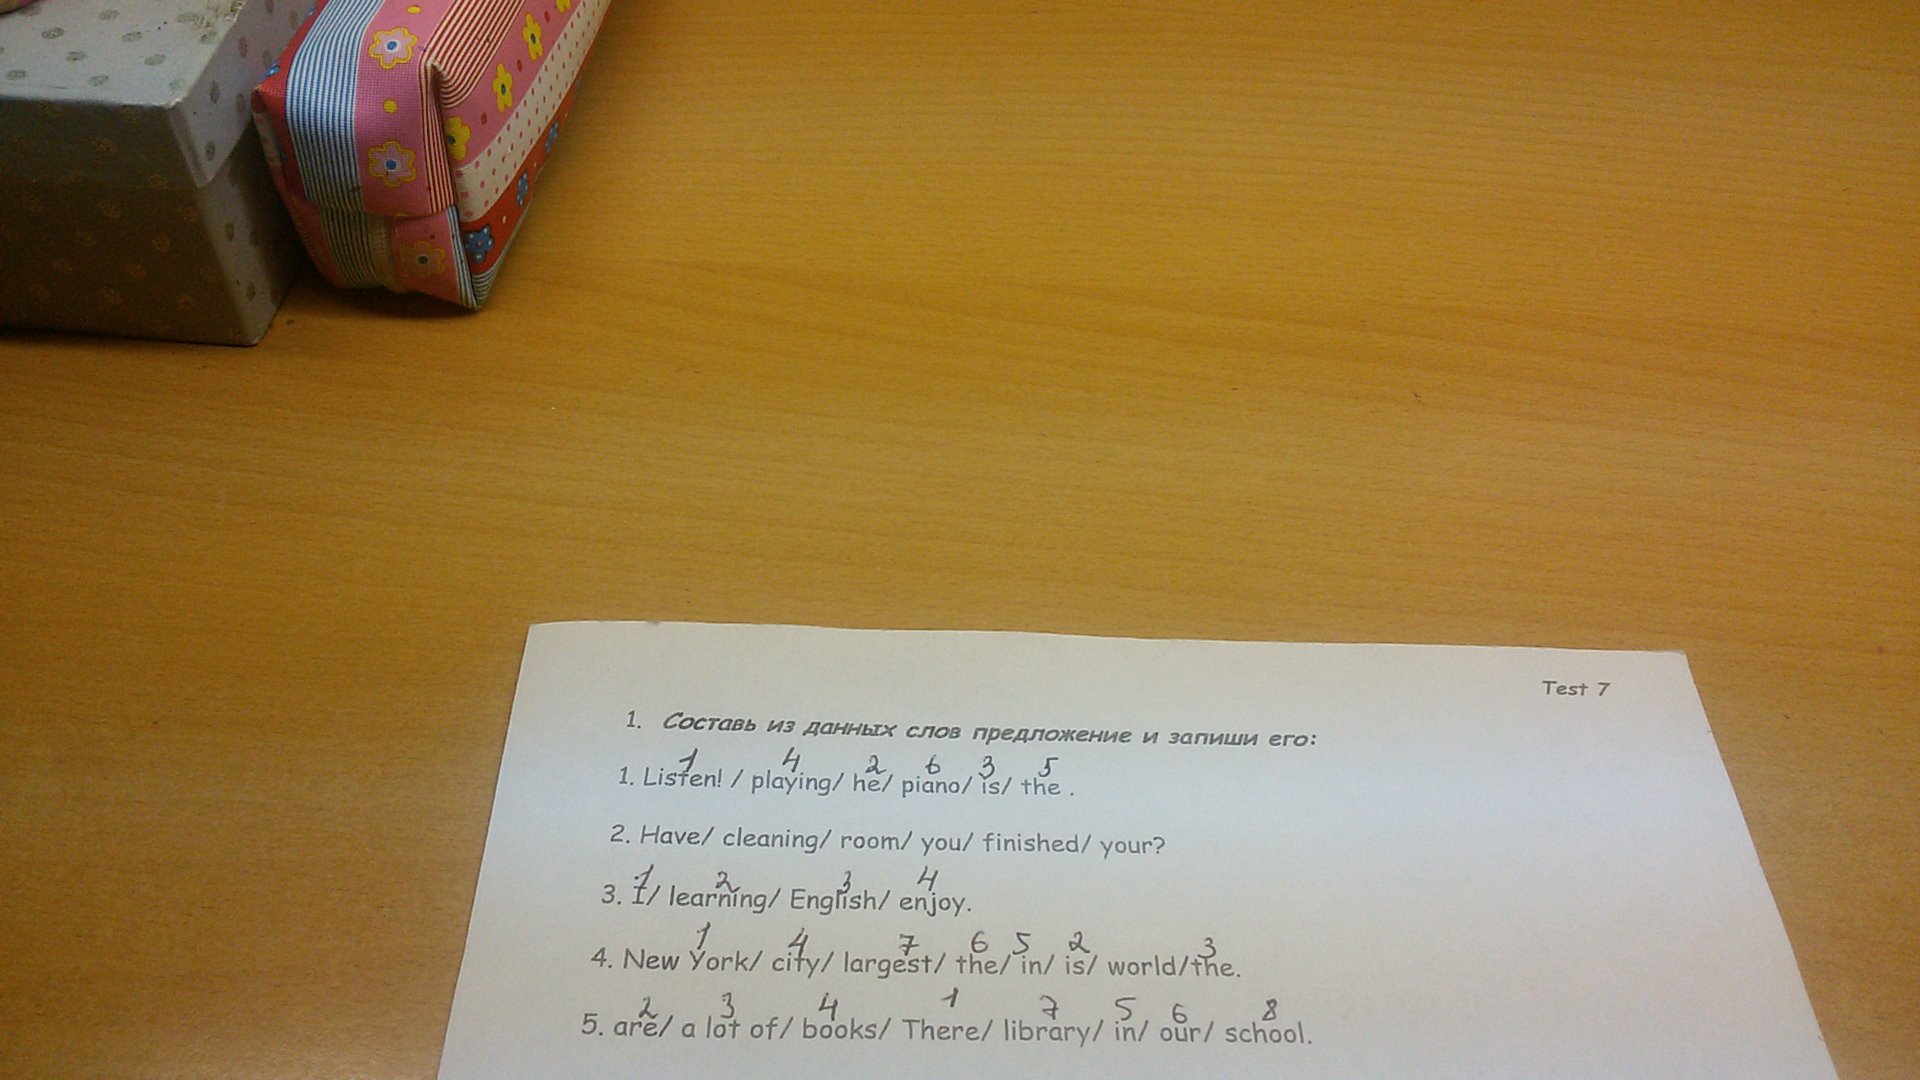 Test 7
1. Составь из данных слов предложение и запиши его:
1 4 2 6 3 5
1. Listen! / playing/ he/ piano/ is/ the .
2. Have/ cleaning/ room/ you/ finished/ your?
1 2 3 4
3. I/ learning/ English/ enjoy.
1 4 7 6 5 2 3
4. New York/ city/ largest/ the/ in/ is/ world/the.
2 3 4 1 7 5 6 8
5. are/ a lot of/ books/ There/ library/ in/ our/ school.